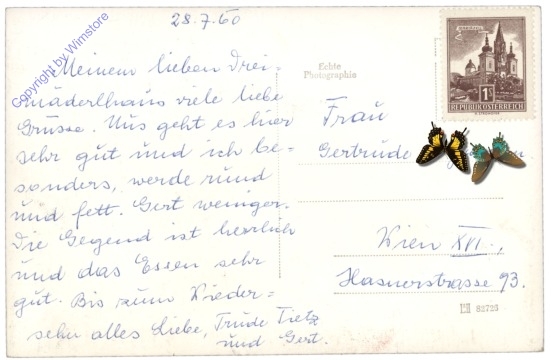 28.7.60
Copyright by Wimstore
Meinem lieben Drei-
mäderlhaus viele liebe
Grüsse. Uns geht es hier
sehr gut und ich be-
sonders, werde rund
und fett. Gert weniger.
Die Gegend ist herrlich
und das Essen sehr
gut. Bis zum Wieder=
sehn alles Liebe, Trude Tietz
und Gert.
Echte
Photographie
1S
REPUBLIK ÖSTERREICH
Frau
Gertrude
Wien XVI.,
Hasnerstrasse 93.
82723